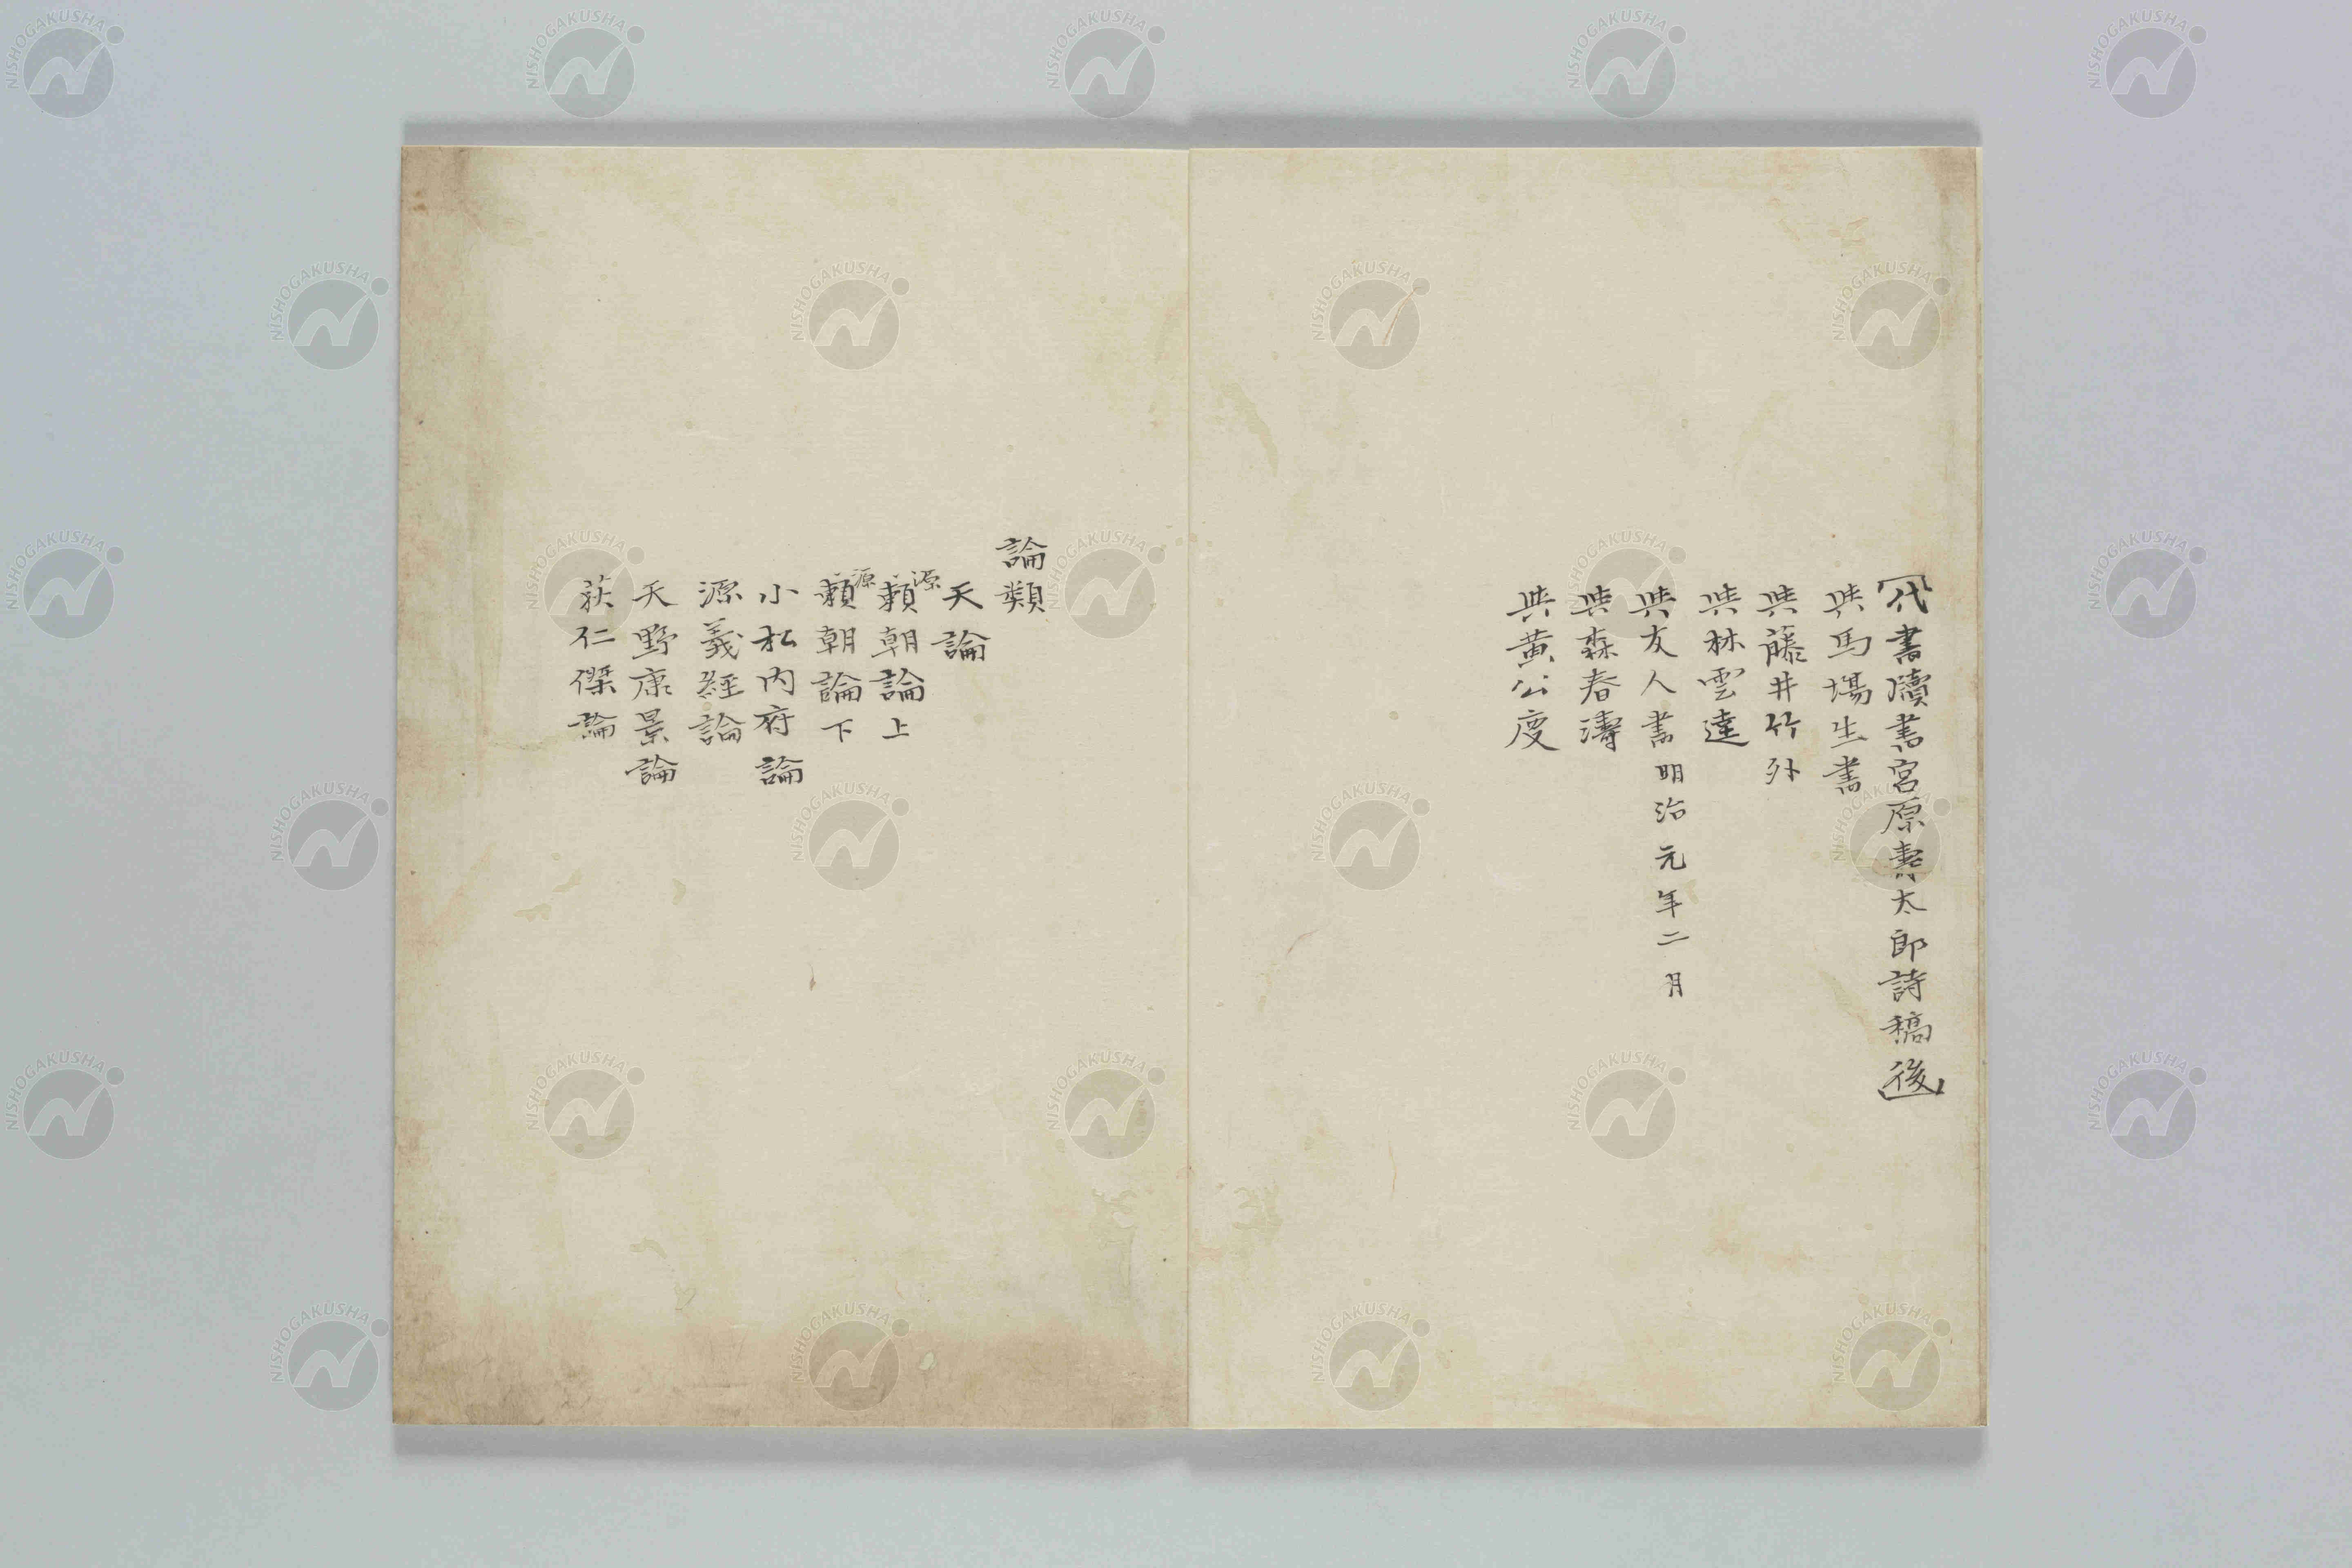 代書牘書宮原壽太郎詩稿後
与馬場生書
与藤井竹外
与林雲逵
与友人書 明治元年二月
与森春濤
与黄公度
論類
天論
源頼朝論上
源頼朝論下
小松内府論
源義経論
天野康景論
荻仁傑論
NISHOGAKUSHA